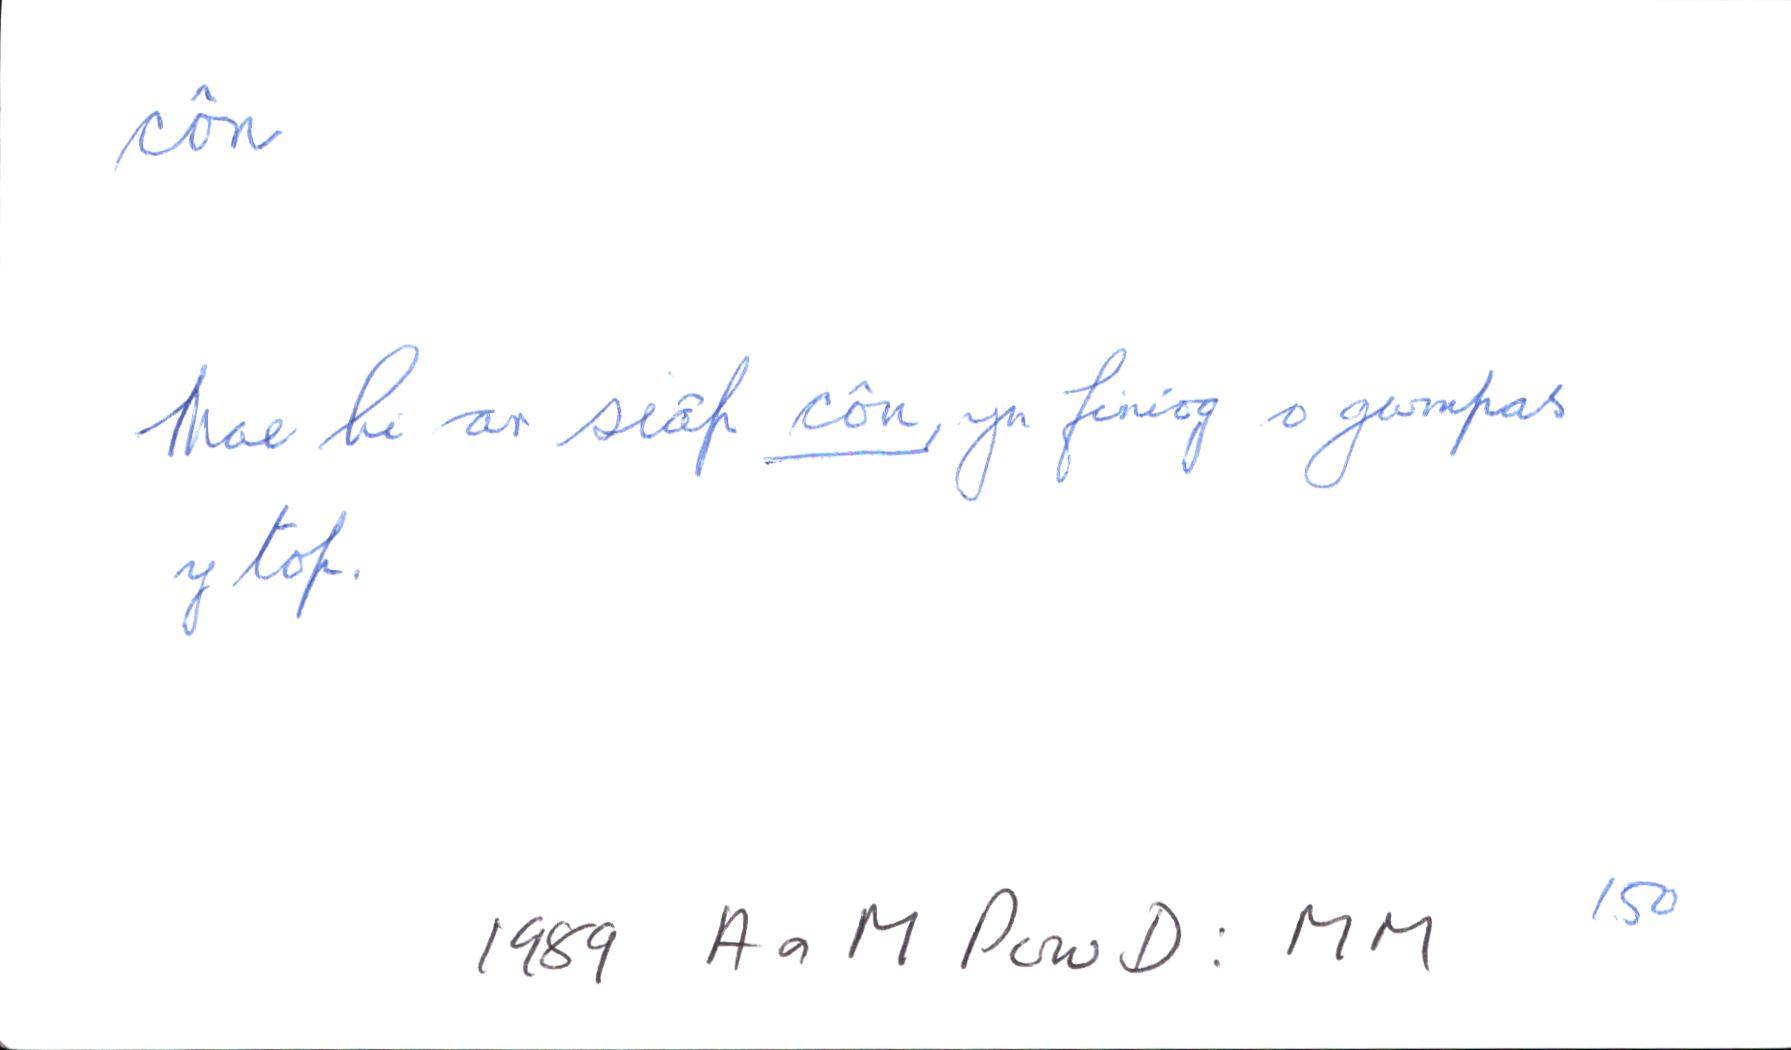 côn
Mae hi ar siâp côn, yn finiog o gwmpas
y top.
1989 A a M Pow D: MM
150